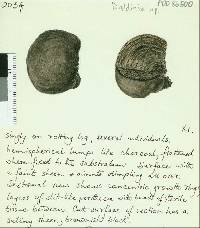 2034
Daldinia sp.
x1.
Singly on rotting log, several individuals,
hemispherical lumps like charcoal, flattened
where fixed to the substratum. Surface with
a faint sheen & minute stimpling all over.
Sectional view shows concentric growth rings
layers of slot-like perithecia with bands of sterile
tissue between. Cut surface of section has a
satiny sheen, brownish black.